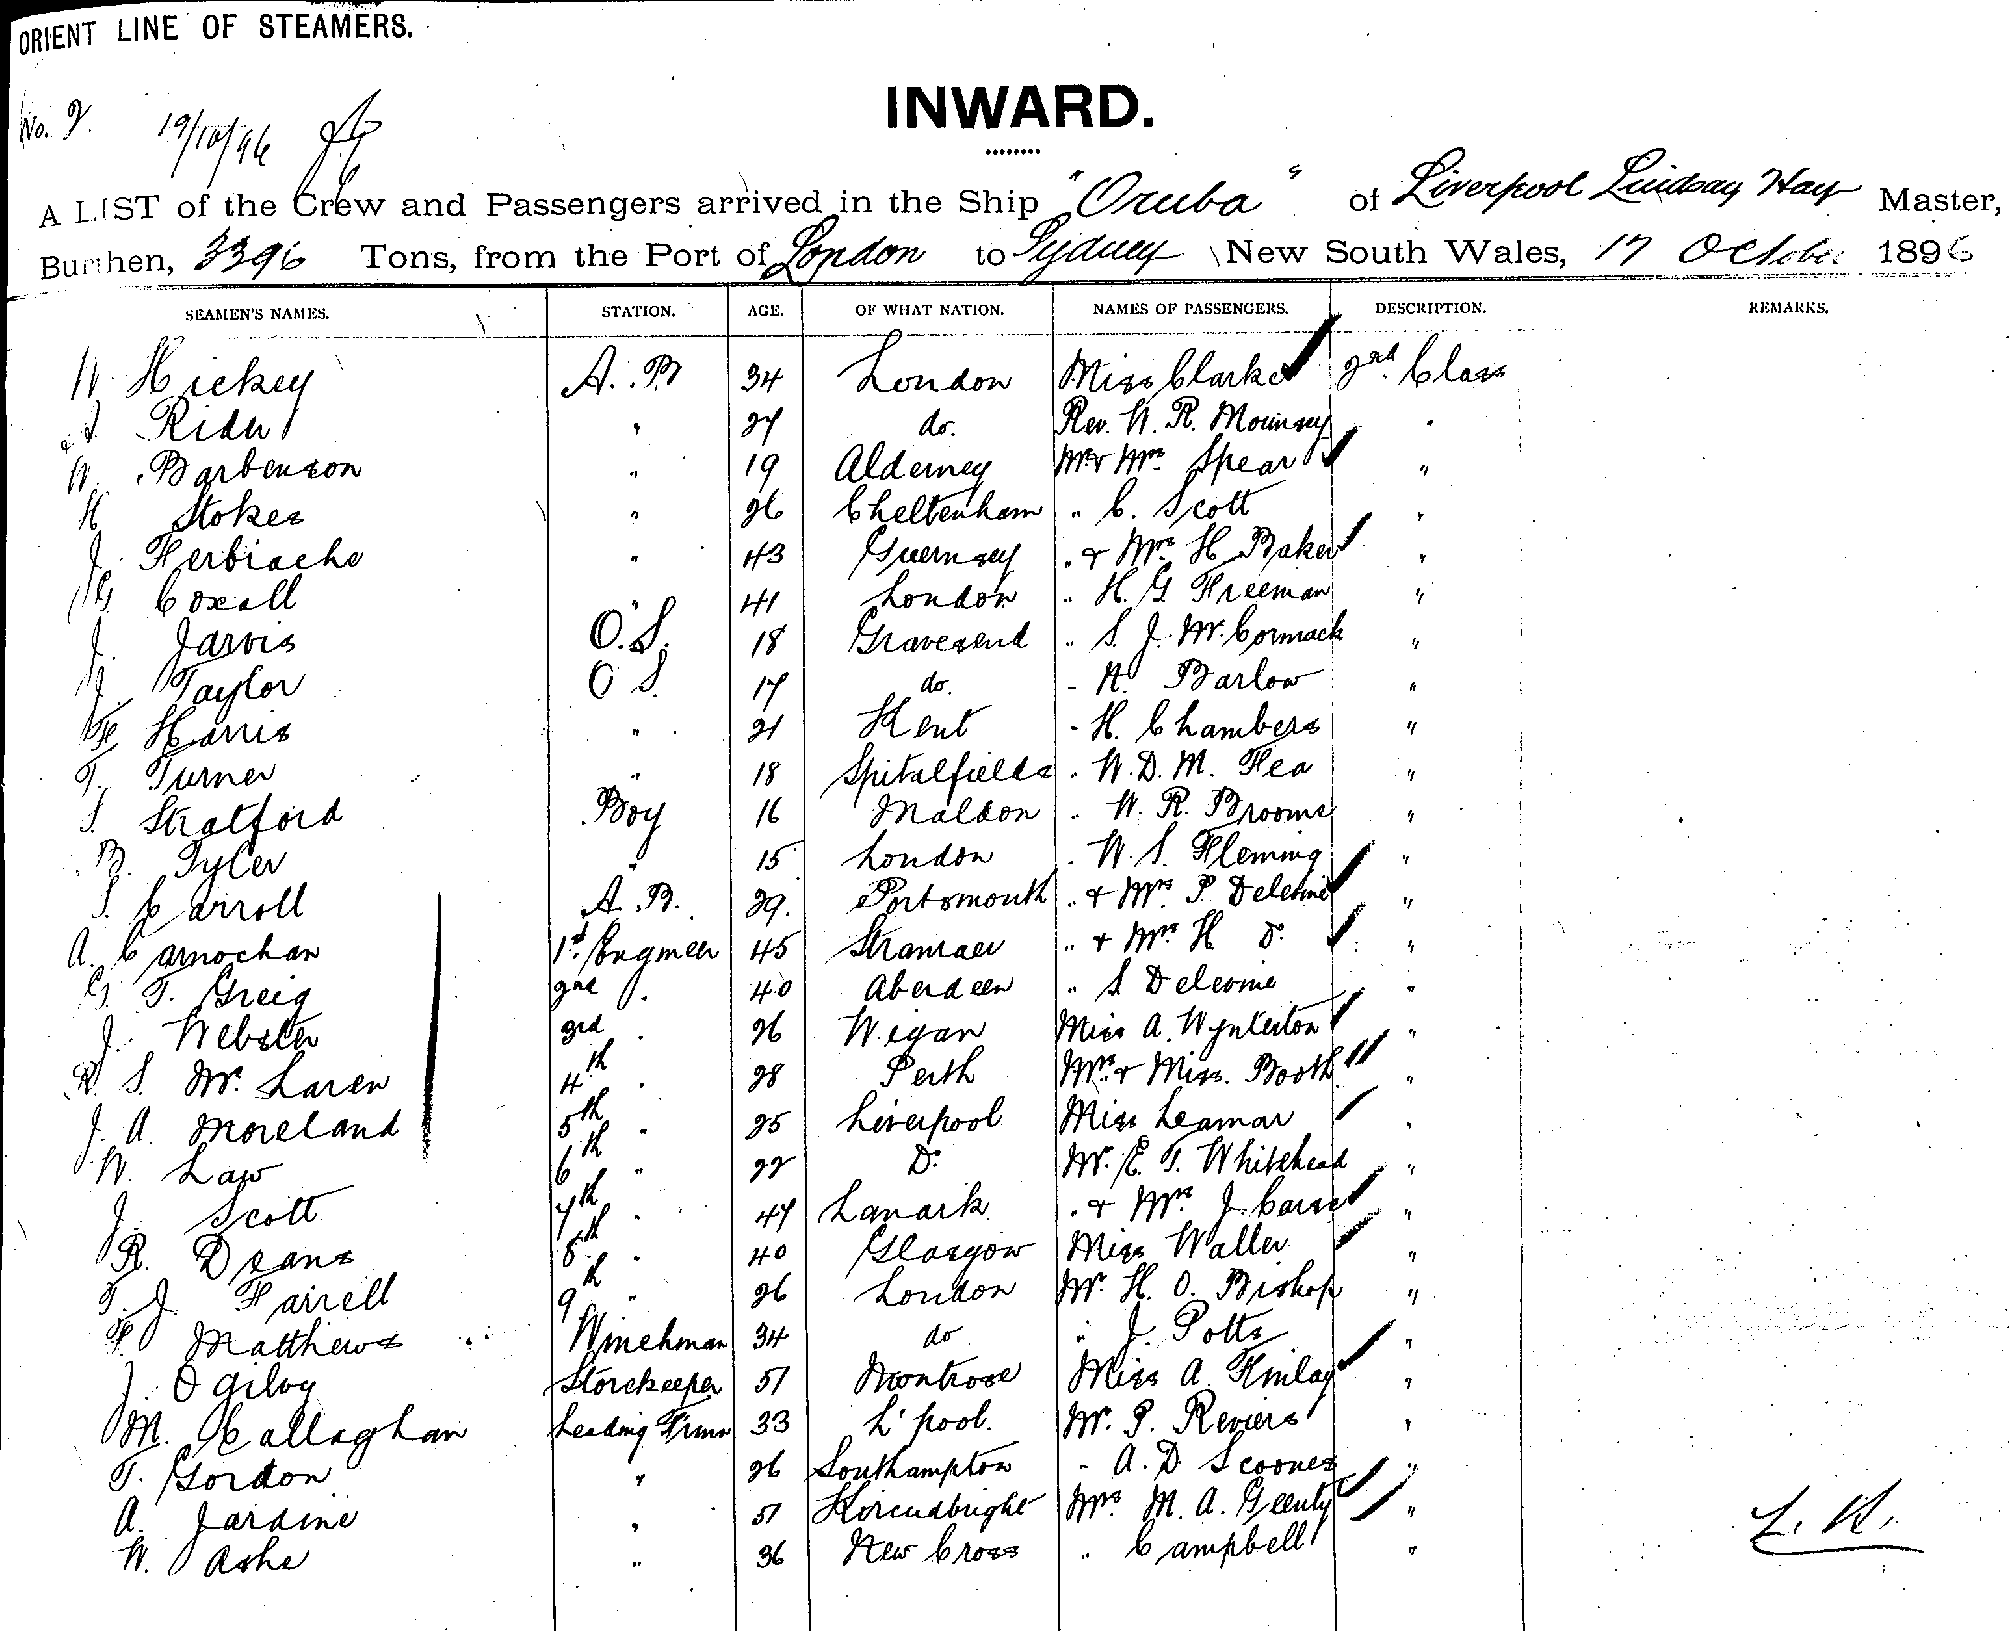 ORIENT LINE OF STEAMERS.
No. 2. 19/10/96
INWARD.
A LIST of the Crew and Passengers arrived in the Ship "Oruba" of Liverpool Lindsay Hay Master,
Burthen, 3396 Tons, from the Port of London to Sydney New South Wales, 17 October 1896
SEAMEN'S NAMES. STATION. AGE. OF WHAT NATION. NAMES OF PASSENGERS. DESCRIPTION. REMARKS.
W. Hickey A.B 34 London Miss Clarke 2nd Class
Rider " 27 do. Rev. W. R. Mounsey "
W. Barbenson " 19 Alderney Mr & Mrs Spear "
H Stokes " 26 Cheltenham " C. Scott "
J. Herbiache " 43 Guernsey " & Mrs H Baker "
G. Coxall " 41 London " H. G Freeman "
J. Jarvis O.S. 18 Gravesend " S. J. McCormack "
J Taylor O S. 17 do. " A. Barlow "
F. Harris " 21 Kent " H. Chambers "
T. Turner " 18 Spitalfields " W. D. M. Fea "
S. Stratford Boy 16 Maldon " W. R. Broome "
B. Tyler " 15 London " W. S. Fleming "
S. Carroll A.B. 29. Portsmouth " & Mrs P. "
A. Carnochan 1st Engineer 45 Stranraer " & Mrs H Do "
G. T. Greig 2nd " 40 Aberdeen " S "
J. Webster 3rd " 26 Wigan Miss A. "
R. S. McLaren 4th " 28 Perth Mrs & Miss. Booth "
J. A. Moreland 5th " 25 Liverpool Miss Leamar "
W. Law 6th " 22 Do Mr. E. T. Whitehead "
J. Scott 7th " 47 Lanark " & Mrs J. "
R. Deans 8th " 40 Glasgow Miss Waller "
T. J. Farrell 9th " 26 London Mr. H. O. Bishop "
F. Matthews Winchman 34 do " J. Potts "
J. Ogilvy Storekeeper 51 Montrose Miss A. Finlay "
M. Callaghan Leading Firmn 33 L'pool. Mr. P. Reviers "
T. Gordon " 26 Southampton " A. D Scoones "
A. Jardine " 51 Kircudbright Mrs M. A. Geenty "
W. Ashe " 36 New Cross " Campbell "
L. H.